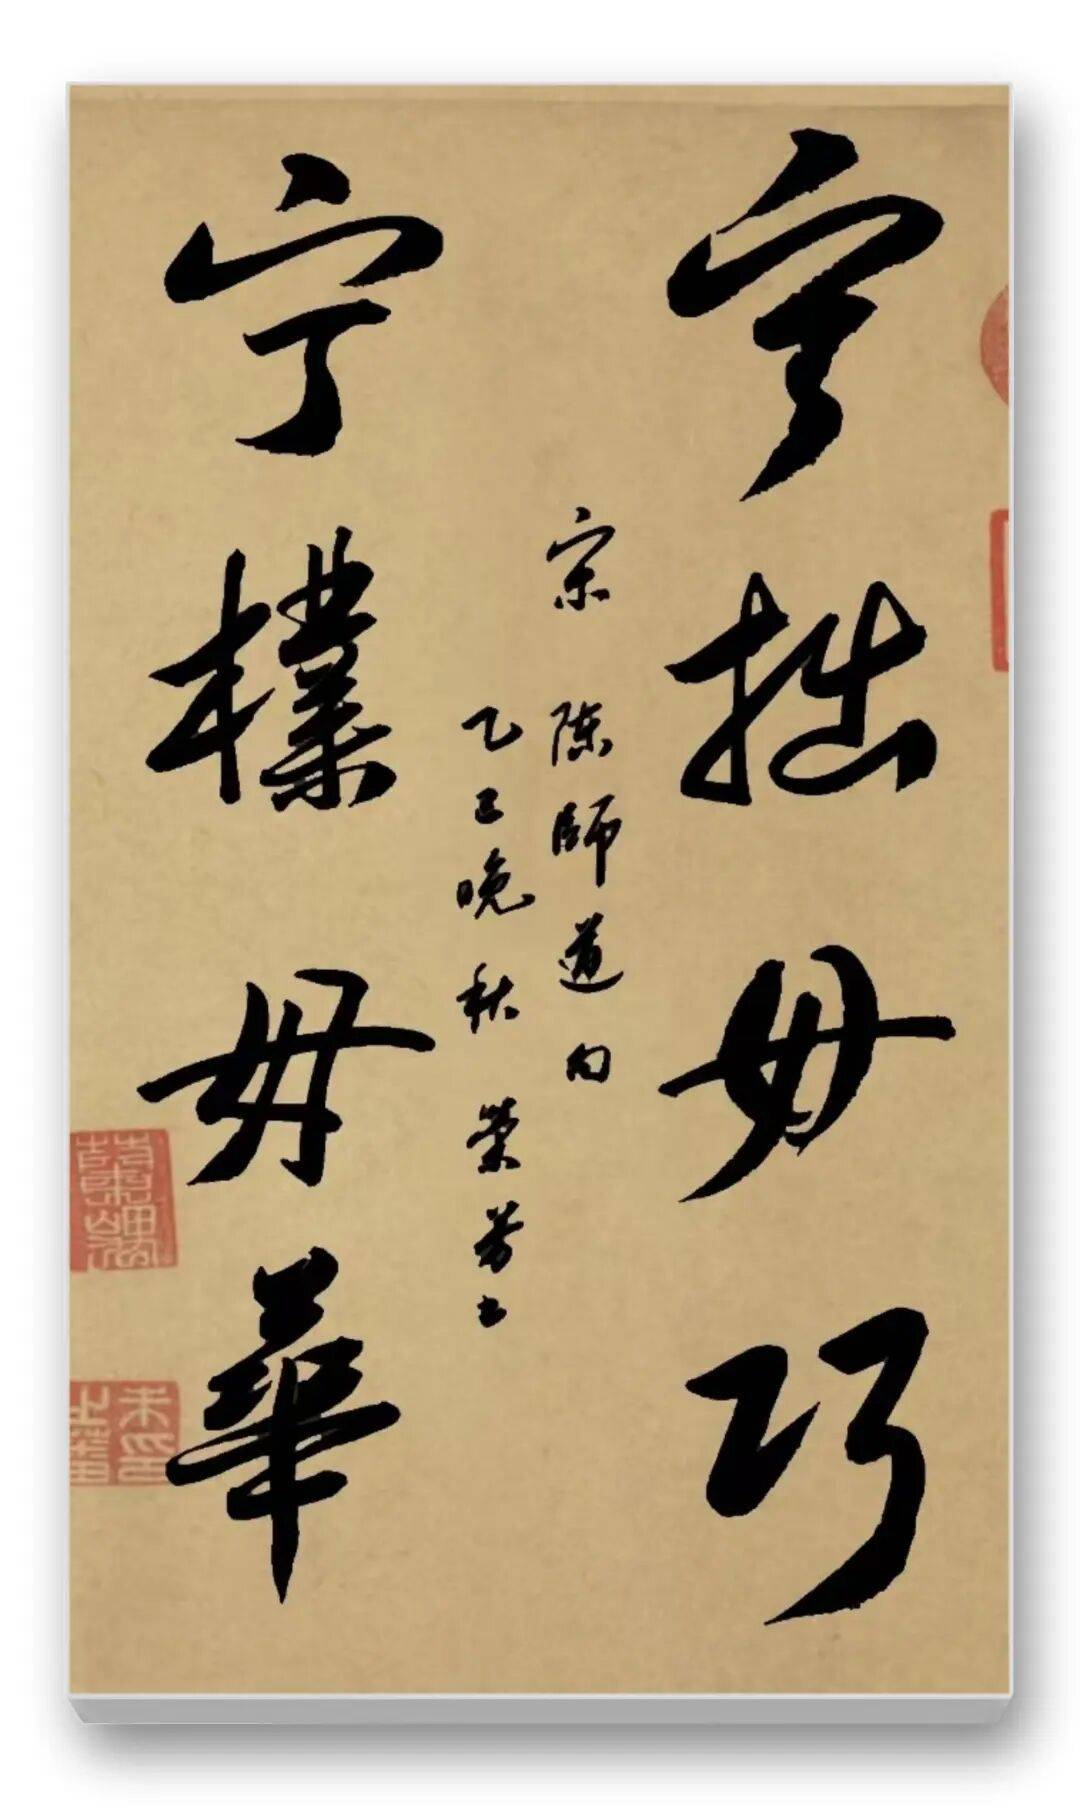 宁拙毋巧
宁樸毋華
宋 陈師道句
乙巳晚秋 荣芳书